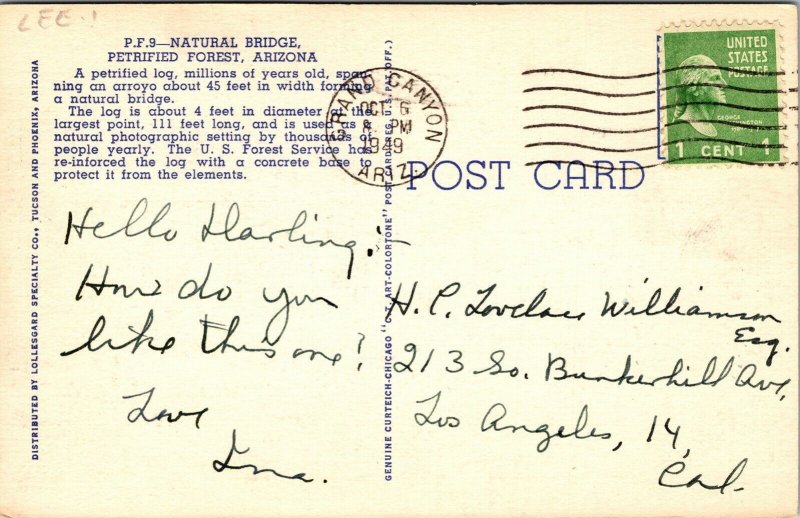 LEE.!
P.F.9—NATURAL BRIDGE,
PETRIFIED FOREST, ARIZONA
A petrified log, millions of years old, span-
ning an arroyo about 45 feet in width forming
a natural bridge.
The log is about 4 feet in diameter at the
largest point, 111 feet long, and is used as a
natural photographic setting by thousands of
people yearly. The U. S. Forest Service has
re-inforced the log with a concrete base to
protect it from the elements.
Hello Darling:-
How do you
like this one?
Love
Ina.
DISTRIBUTED BY LOLLESGARD SPECIALTY CO., TUCSON AND PHOENIX, ARIZONA
GENUINE CURTEICH-CHICAGO "C.T. ART-COLORTONE" POST CARD (REG. U.S. PAT. OFF.)
GRAND CANYON
OCT 6
8 PM
1949
ARIZ.
UNITED
STATES
POSTAGE
GEORGE
WASHINGTON
1 CENT 1
POST CARD
H. C. Lovelace Williamson
Esq.
213 So. Bunkerhill Ave,
Los Angeles, 14,
Cal.